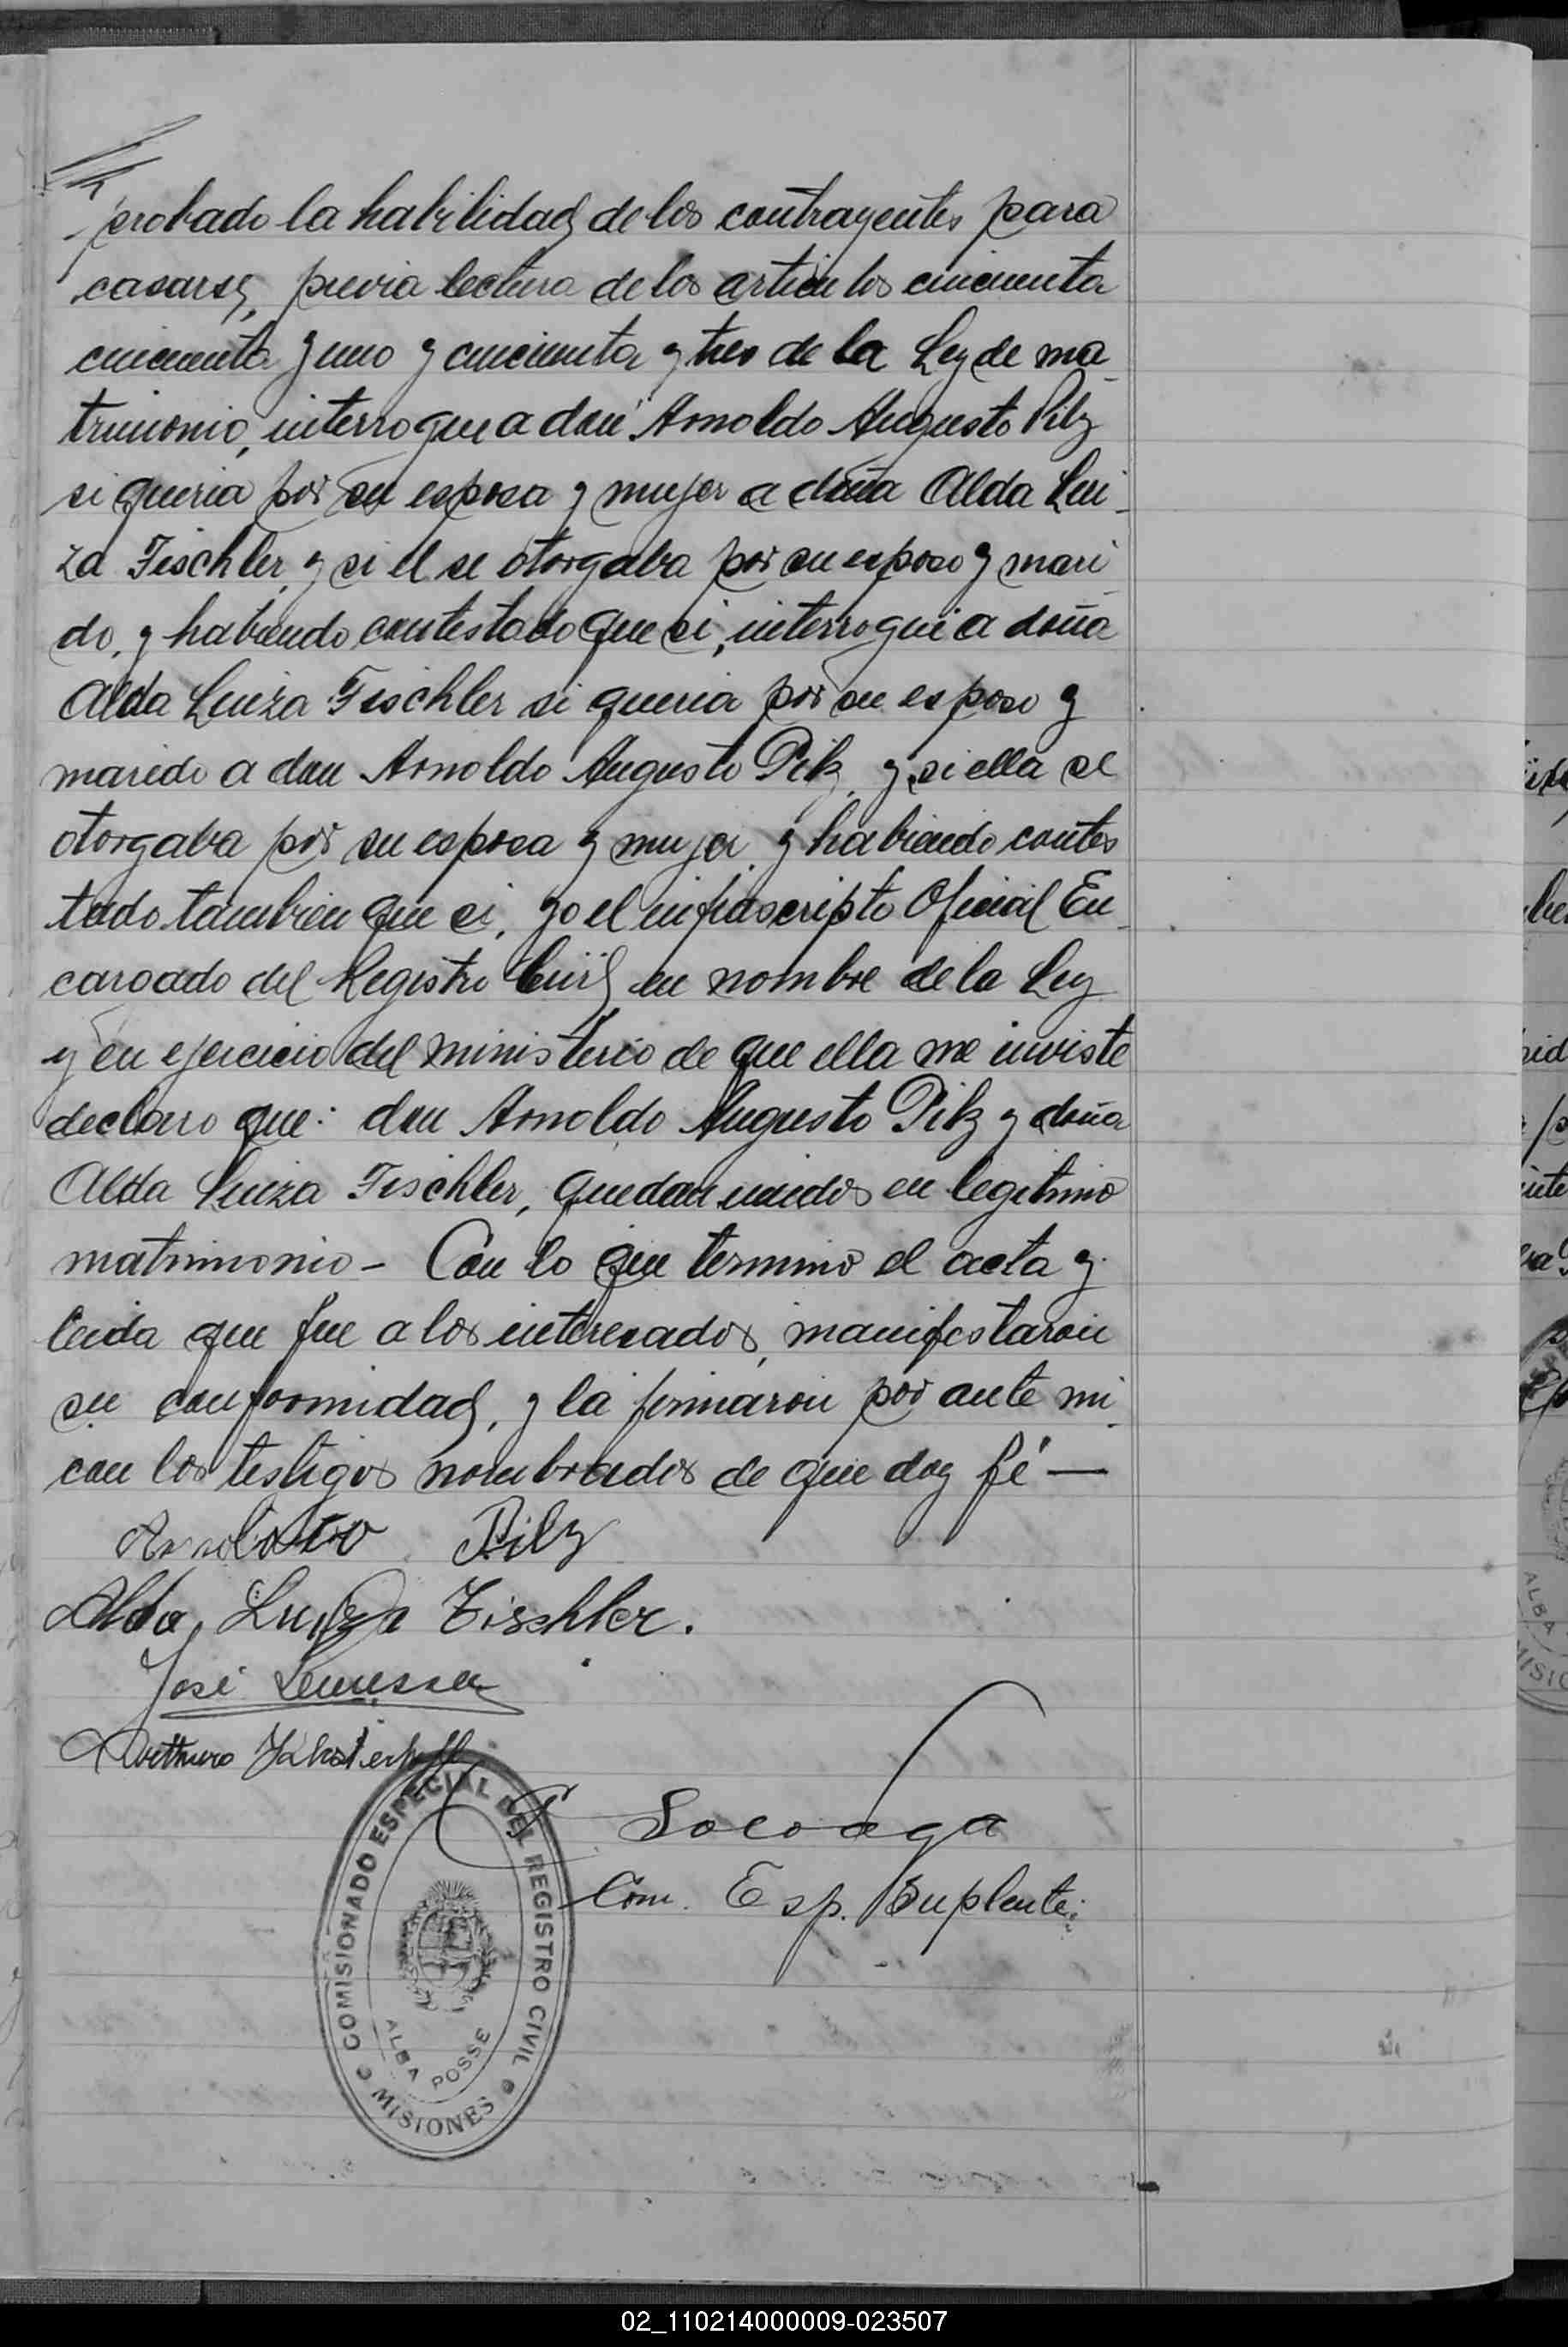 probado la habilidad de los contrayentes para
casarse, previa lectura de los articulos cincuenta
cincuenta y uno y cincuenta y tres de la Ley de ma-
trimonio, interrogue a don Arnoldo Augusto Pilz
si queria por su esposa y mujer a doña Alda Lui-
za Fischler, y si el se otorgaba por su esposo y mari-
do, y habiendo contestado que si, interrogué a doña
Alda Luiza Fischler si queria por su esposo y
marido a don Arnoldo Augusto Pilz, y si ella se
otorgaba por su esposa y mujer, y habiendo contes
tado tambien que si, yo el infrascripto Oficial En-
cargado del Registro Civil en nombre de la Ley
y en ejercicio del ministerio de que ella me inviste
declaro que: don Arnoldo Augusto Pilz y doña
Alda Luiza Fischler, quedan unidos en legitimo
matrimonio - Con lo que terminó el acta y
leida que fue a los interesados, manifestaron
su conformidad, y la firmaron por ante mi
con los testigos nombrados de que doy fé —
Pilz
Alda Luiza Fischler.
José
Arthuro
Com. Esp. Suplente.
COMISIONADO ESPECIAL DEL REGISTRO CIVIL
ALBA POSSE
MISIONES
02_110214000009-023507